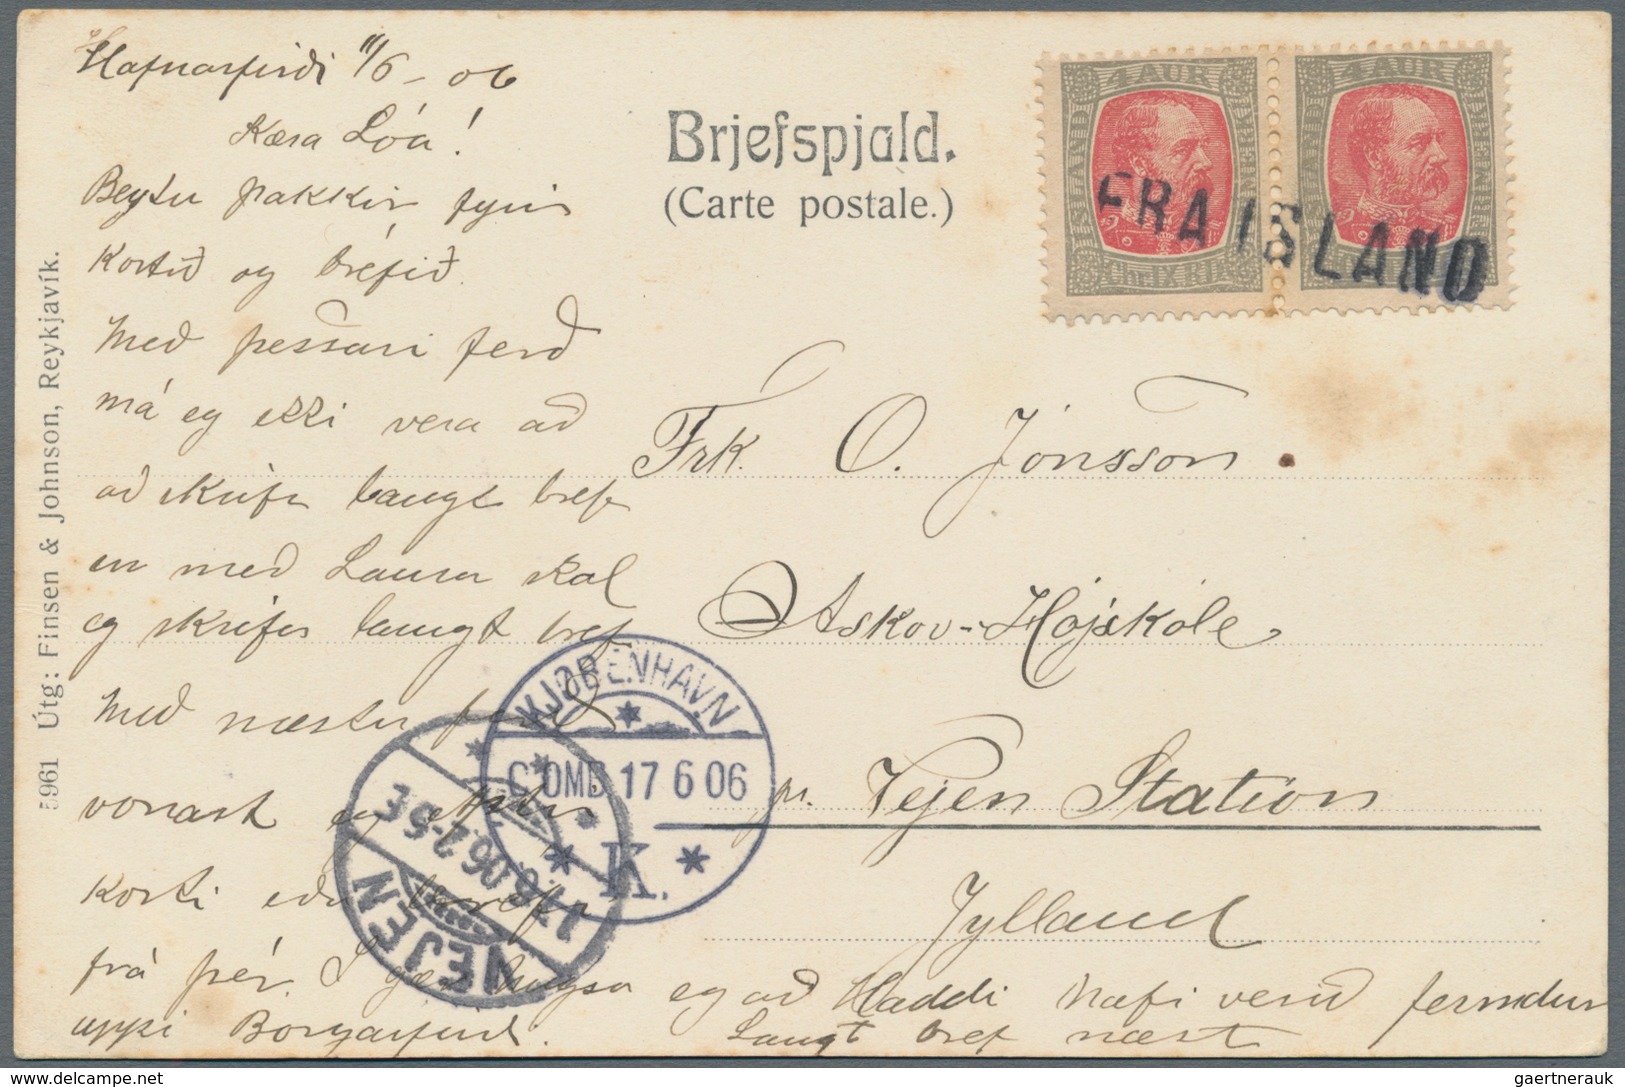 Hafnarfirði 11/6 - 06
Kæra Lóa!
Beztu þakkir fyrir
Kortið og bréfið.
Með þessari ferð
má eg ekki vera að
að skrifa langt bréf
en með Laura skal
eg skrifa langt bréf
Með næstu ferð
vonast eg eftir
korti eða bréfi
frá þér. Í gær hugsa eg að Haddi hafi verið fermdur
uppi Borgarfirði. Langt bref næst
Brjefspjald.
(Carte postale.)
4 AUR
4 AUR
FRA ISLAND
Frk. O. Jónsson.
Askov-Højskole
pr. Vejen Station
Jylland
KJØBENHAVN
C OMB 17 6 06
K.
VEJEN
17.6.06. 2-5 E
5961 Útg: Finsen & Johnson, Reykjavík.
gaertnerauk @ delcampe.net